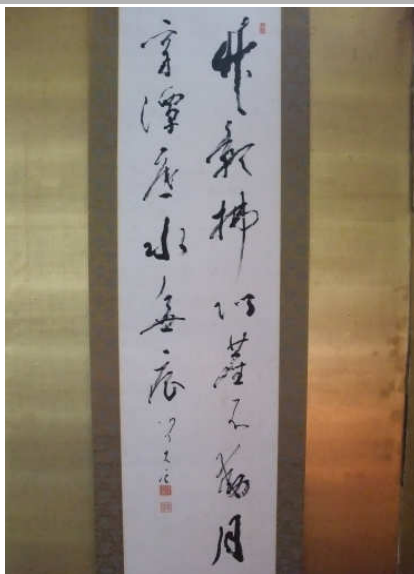 竹影拂階塵不動月
穿潭底水無痕